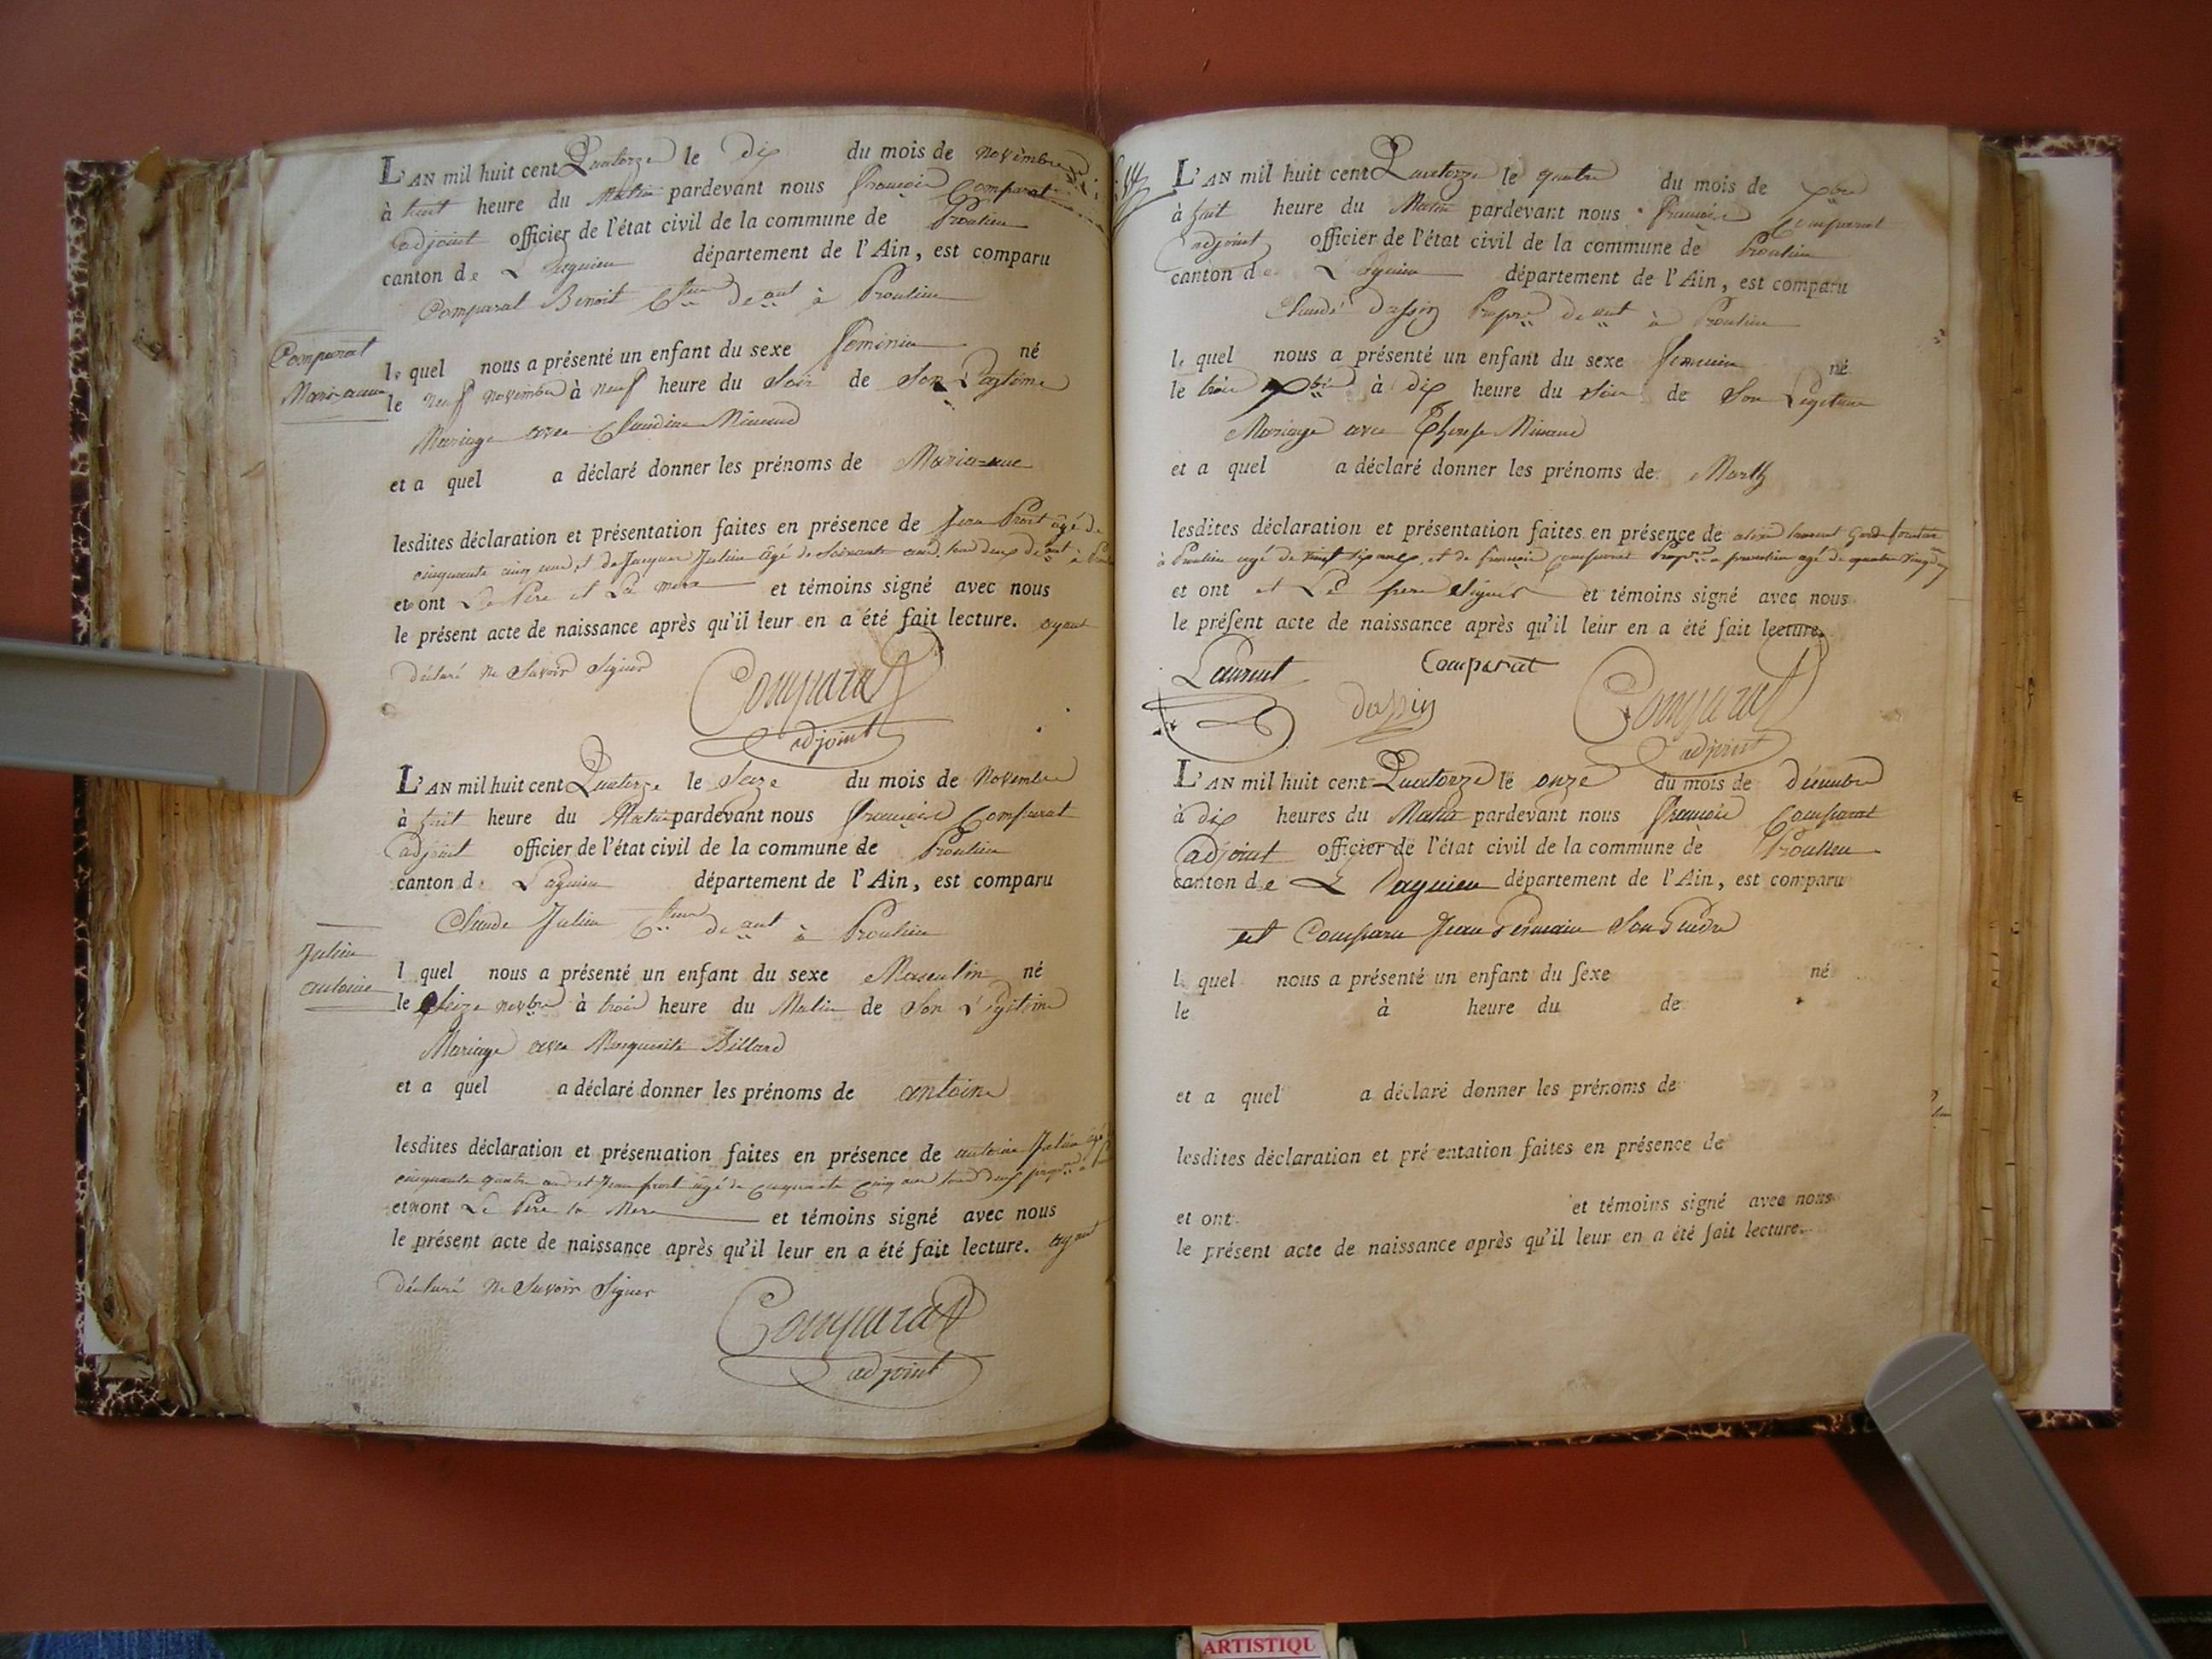 L'AN mil huit cent Quatorze le dix du mois de novembre
à huit heure du Matin pardevant nous françois Comparat
adjoint officier de l'état civil de la commune de Proulieu
canton de Lagnieu département de l'Ain, est comparu
Comparat Benoit deant à Proulieu
Comparat
Marianne
le quel nous a présenté un enfant du sexe feminin né
le neuf novembre à neuf heure du Soir de Son Légitime
Mariage avec Claudine Minand
et a quel a déclaré donner les prénoms de Marianne
lesdites déclaration et présentation faites en présence de Jean Prost agé de
cinquante cinq ans, et de Jacques Julien agé de Soixante ans, tous deux deant à
et ont Le Père et La mere et témoins signé avec nous
le présent acte de naissance après qu'il leur en a été fait lecture. ayant
déclaré ne Savoir Signer
Comparat
adjoint
L'AN mil huit cent Quatorze le Seize du mois de Novembre
à huit heure du Matin pardevant nous françois Comparat
adjoint officier de l'état civil de la commune de Proulieu
canton de Lagnieu département de l'Ain, est comparu
Claude Julien deant à Proulieu
Julien
antoine
l quel nous a présenté un enfant du sexe Masculin né
le Seize novbre à trois heure du Matin de Son Légitime
Mariage avec Marguerite Billard
et a quel a déclaré donner les prénoms de antoine
lesdites déclaration et présentation faites en présence de antoine Julien agé
cinquante quatre ans et Jean prost agé de cinquante cinq ans tous deux
et ont Le Père la Mere et témoins signé avec nous
le présent acte de naissance après qu'il leur en a été fait lecture. ayant
déclaré ne Savoir Signer
Comparat
adjoint
L'AN mil huit cent Quatorze le quatre du mois de xbre
à huit heure du Matin pardevant nous françois Comparat
adjoint officier de l'état civil de la commune de Proulieu
canton de Lagnieu département de l'Ain, est comparu
Claude Dassin Propre deant à Proulieu
le quel nous a présenté un enfant du sexe feminin né
le trois xbre à dix heure du Soir de Son Légitime
Mariage avec Therese Minand
et a quel a déclaré donner les prénoms de Marthe
lesdites déclaration et présentation faites en présence de Laurent Garde forestier
à Proulieu agé de vingt six ans, et de françois Comparat Propre a proulieu agé de quatre vingt
et ont et Le pere Signés et témoins signé avec nous
le présent acte de naissance après qu'il leur en a été fait lecture.
Laurent Comparat
dassin Comparat
adjoint
L'AN mil huit cent Quatorze le onze du mois de décembre
à dix heures du Matin pardevant nous françois Comparat
adjoint officier de l'état civil de la commune de Proulieu
canton de Lagnieu département de l'Ain, est comparu
est Comparu Jean Germain Son Gendre
l quel nous a présenté un enfant du sexe né
le à heure du de
et a quel a déclaré donner les prénoms de
lesdites déclaration et pré entation faites en présence de
et ont et témoins signé avec nous
le présent acte de naissance après qu'il leur en a été fait lecture.
ARTISTIQU